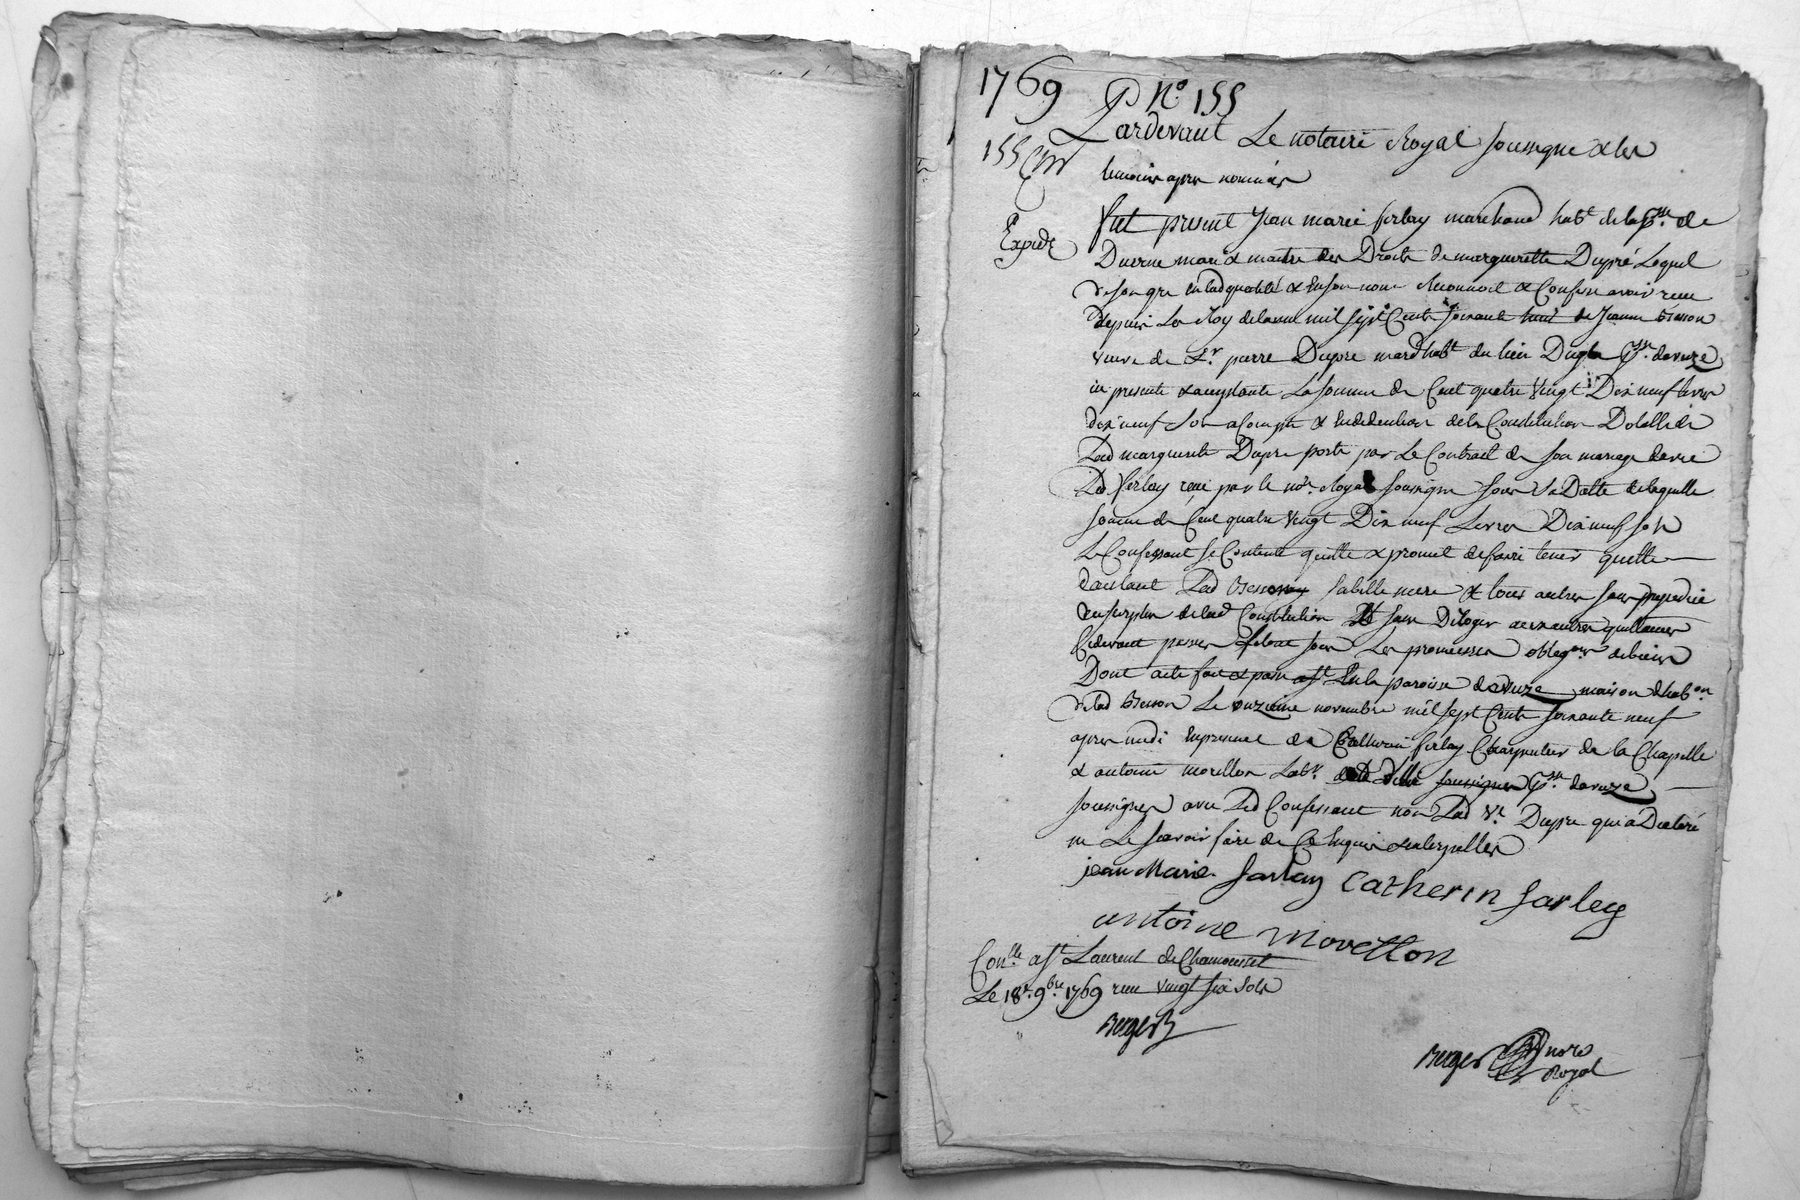 1769
N° 155
155
Pardevant Le notaire Royal soussigné & les
temoins apres nommés
Expedié
fut present Jean marie ferlay marchand habt. de la psse. de
Duerne mari & maitre des Droits de margueritte Dupré Lequel
de son gré en lad qualité & en son nom Reconnoit & Confesse avoir reçu
depuis Le moy de mil sept Cents soixante huit de Jeanne Besson
veuve de Sr. pierre Dupre mard habt. du lieu psse. daveze
icy presente & acceptante La somme de Cent quatre vingt Dix neuf livres
dix neuf sols a Compte & en deduction de la Constitution Dotalle de
Lad marguerite Dupre porté par Le Contract de son mariage avec
Led ferlay reçu par le nore. Royal soussigné sous Sa Datte de laquelle
somme de Cent quatre vingt Dix neuf Livres Dix neuf sols
Le Confessant se Contente quitte & promet de faire tenir quitte
dautant Lad Besson sa belle mere & tous autres sans prejudice
du surplus de lad Constitution & sans Deroger aux autres quittances
Cydevant passées le tout sous Les promesses obligons. de biens
Dont acte fait & passé en la paroisse daveze maison dhabon.
de lad Besson Le onzieme novembre mil sept Cents soixante neuf
apres midi en presence de Catherin ferlay Charpentier de la Chapelle
& antoine morellon Labr. psse. daveze
soussignés avec Led Confessant non Lad ve. Dupre qui a Declaré
ne Le sçavoir faire de Ce Enquis & interpellés
jean Marie farlay Catherin farley
antoine morellon
Conlle. a St Laurent de Chamousset
Le 18e. 9bre. 1769 reçu vingt six sols
Berger
Berger nore
Royal